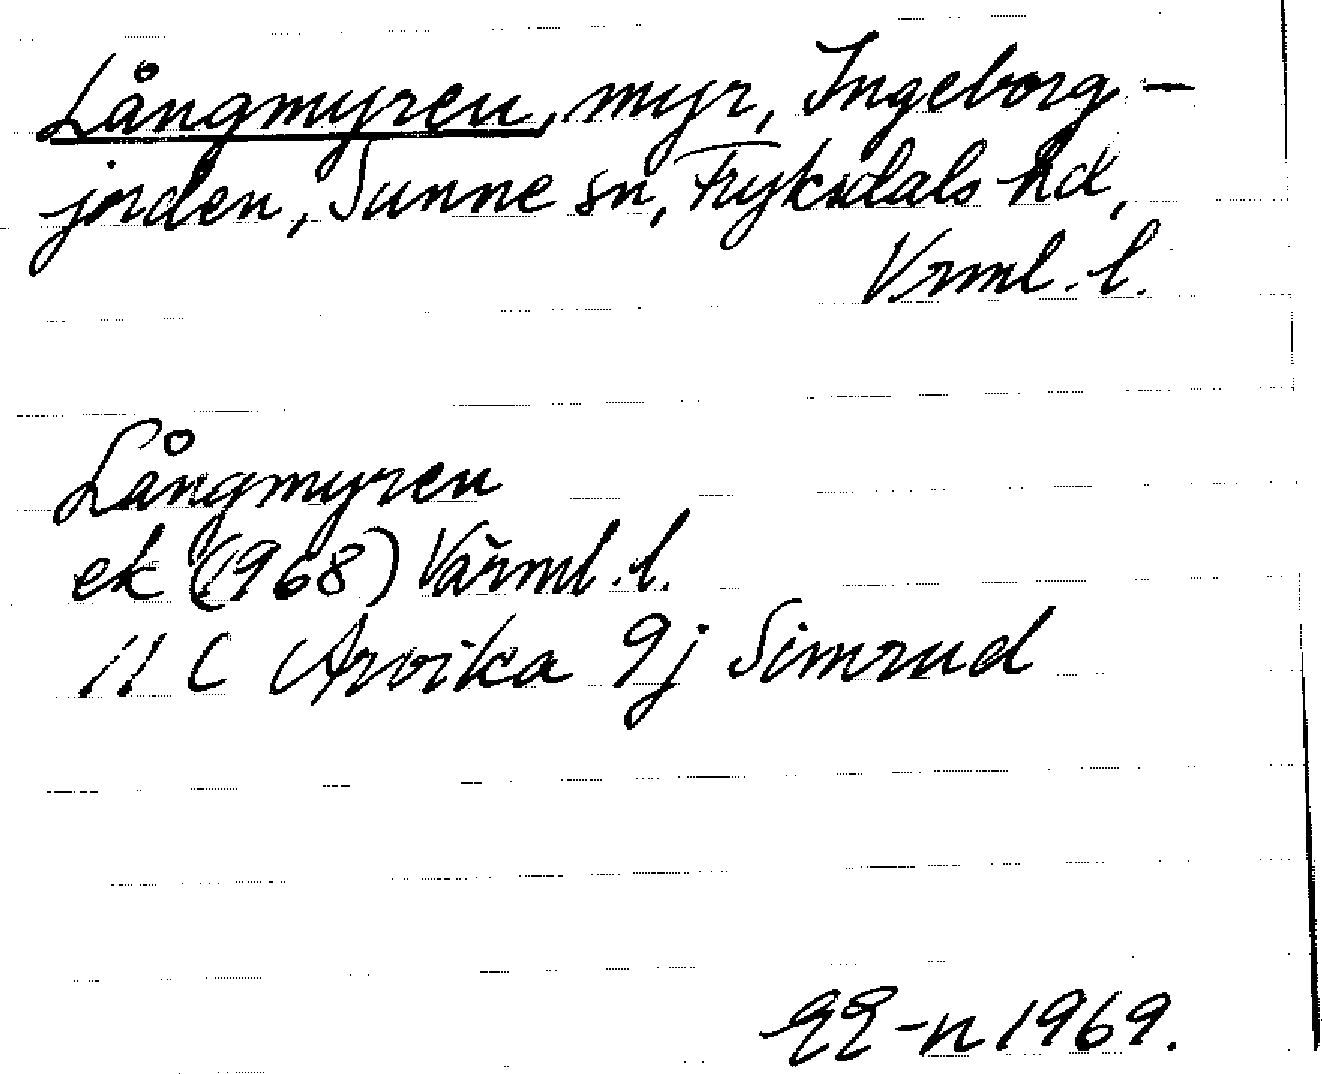 Långmyren, myr, Ingeborg-
jorden, Sunne sn, Fryksdals hd,
Vrml. l.
Långmyren
ek (1968) Värml. l.
11 C Arvika 9j Simrud
EE-n 1969.